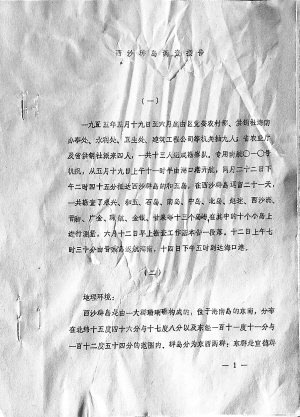 西沙群岛调查报告
（一）
一九五五年五月十九日至六月由区党委农村部、供销社海防
办事处、水利处、卫生处、建筑工程公司等机关抽九人；省农业厅
及省供销社派来四人，一共十三人组成
机，从五月十九日上午十一时半由海口港开航，同月二十二日下
午二时四十五分抵达西沙群岛的和五岛，在西沙群岛逗留二十一天，
一共踏查了永兴、和五、石岛、南岛、中岛、北岛、赵述、西沙洲、
晋卿、广金、琛航、金银、甘泉等十三个岛屿，在其中的十个小岛上
进行测量，六月十二日早上踏查工作基本告一段落，十二日上午七
时三十分由晋卿岛返航海南，十四日下午五时到达海口港。
（二）
地理环境：
西沙群岛是由一大群珊瑚礁构成的，位于海南岛的东南，分布
在北纬十五度四十六分与十七度八分以及东经一百十一度十一分与
一百十二度五十四分的范围内，群岛分为东西两群：东群处宣德群
— 1 —